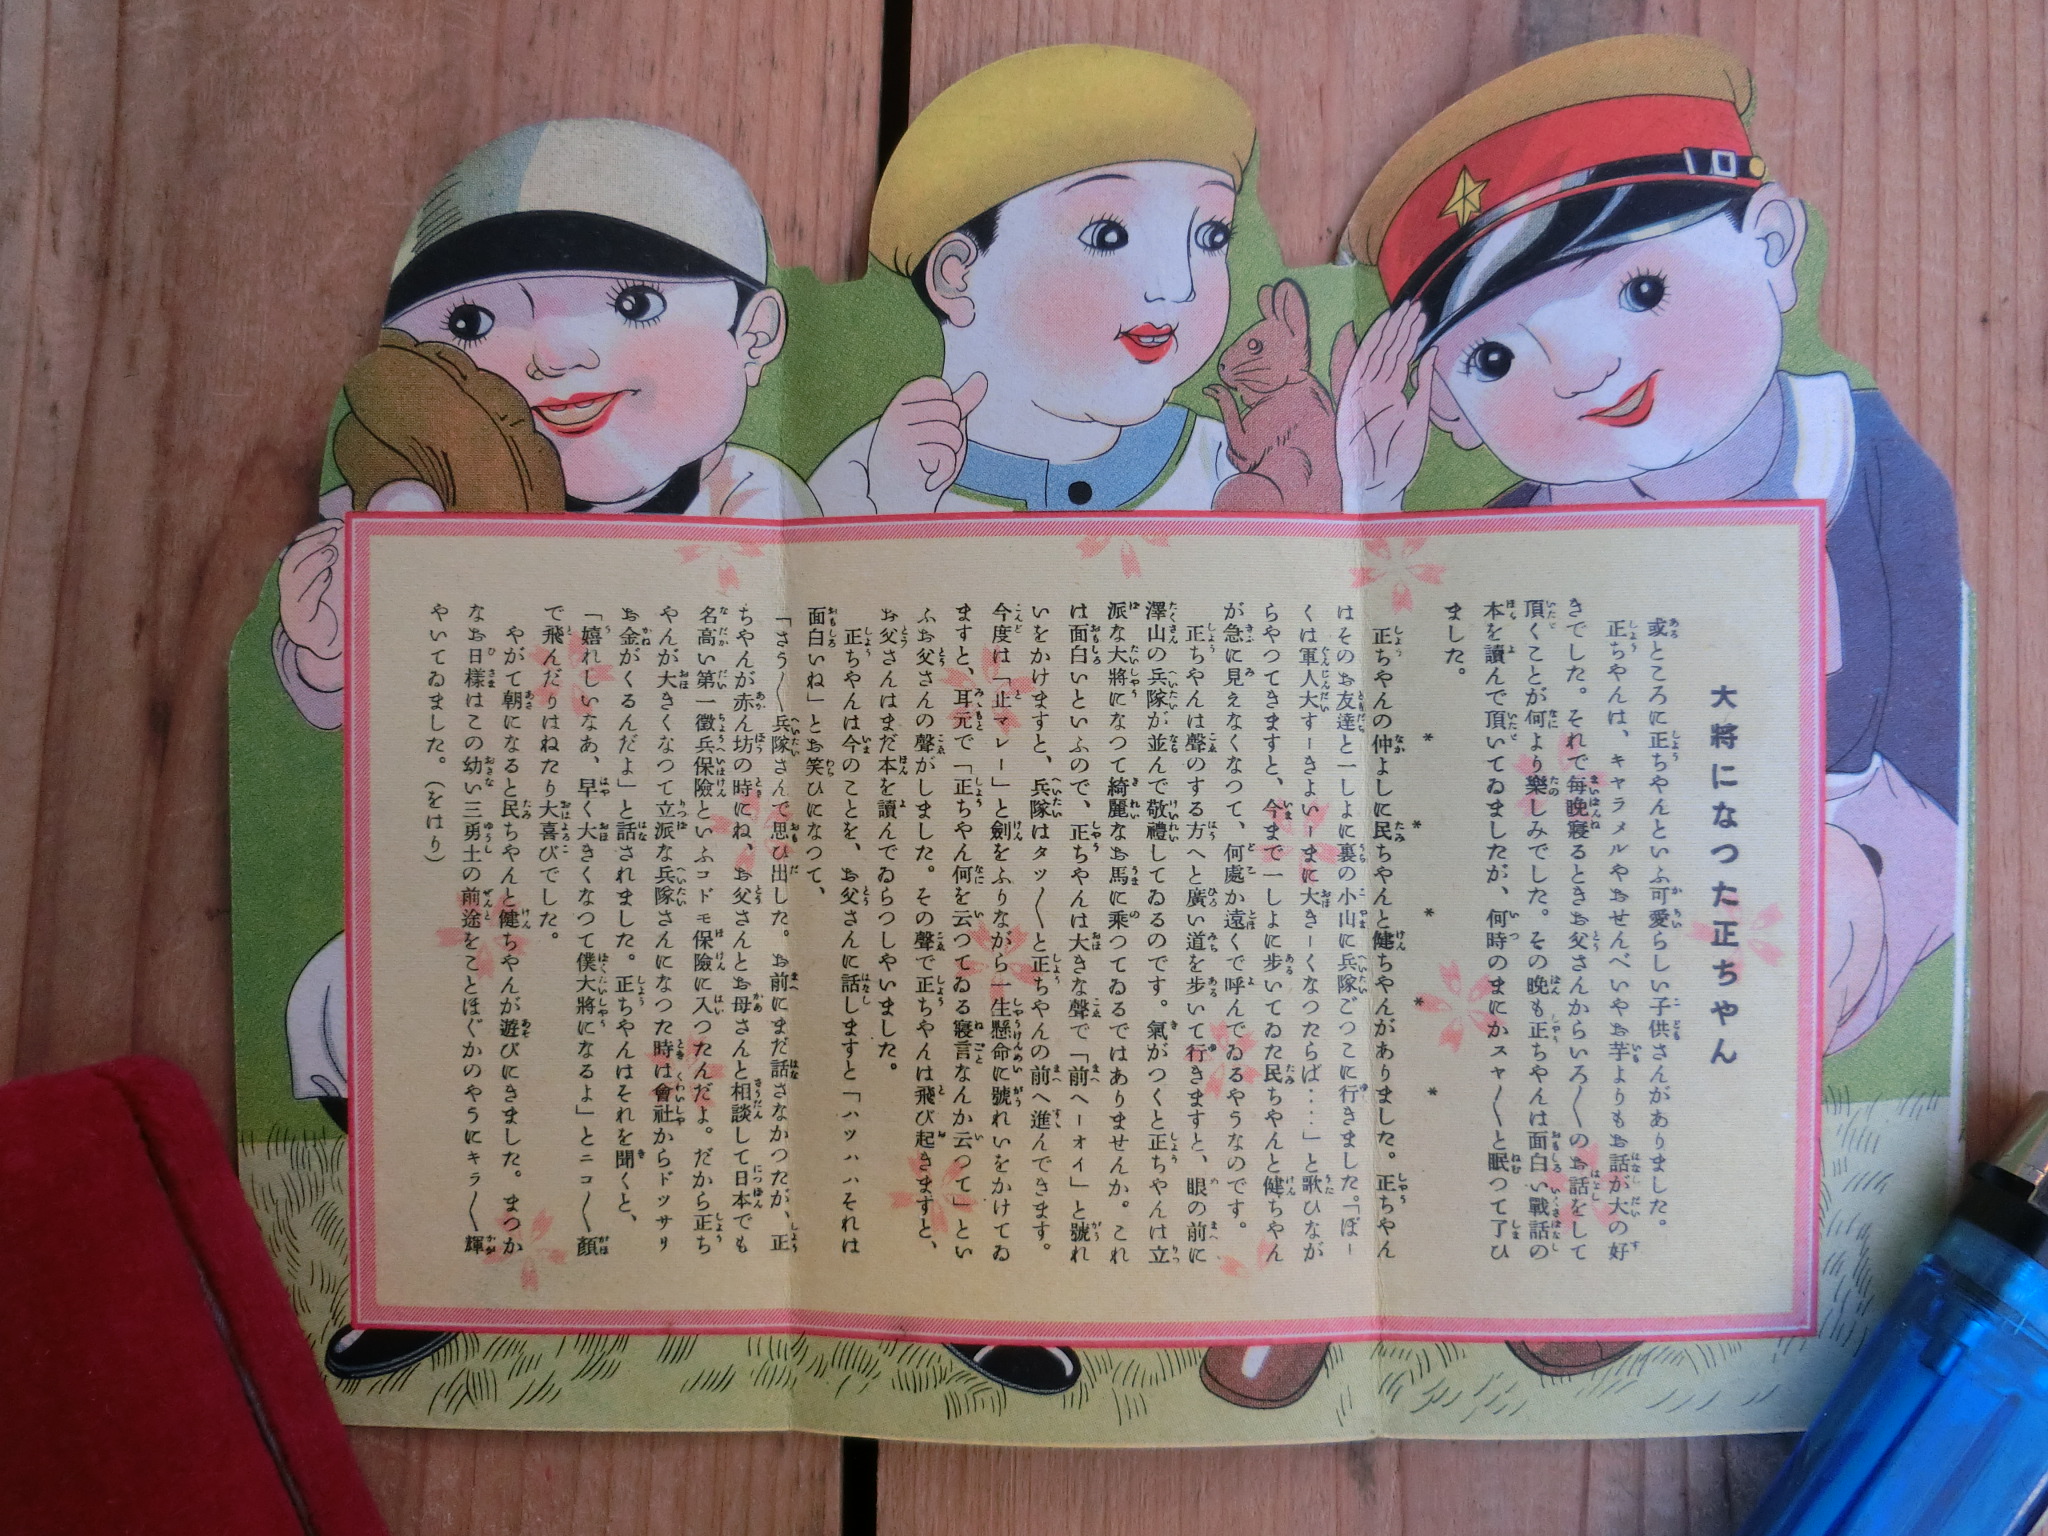 大將になつた正ちやん
或ところに正ちやんといふ可愛らしい子供さんがありました。
正ちやんは、キャラメルやおせんべいやお芋よりもお話が大の好
きでした。それで毎晩寢るときお父さんからいろ〱のお話をして
頂くことが何より樂しみでした。その晩も正ちやんは面白い戰話の
本を讀んで頂いてゐましたが、何時のまにかスャ〱と眠つて了ひ
ました。
* * * * *
正ちやんの仲よしに民ちやんと健ちやんがありました。正ちやん
はそのお友達と一しよに裏の小山に兵隊ごつこに行きました。「ぼー
くは軍人大すーきよいーまに大きーくなつたらば‥‥」と歌ひなが
らやつてきますと、今まで一しよに歩いてゐた民ちやんと健ちやん
が急に見えなくなつて、何處か遠くで呼んでゐるやうなのです。
正ちやんは聲のする方へと廣い道を歩いて行きますと、眼の前に
澤山の兵隊が並んで敬禮してゐるのです。氣がつくと正ちやんは立
派な大將になつて綺麗なお馬に乘つてゐるではありませんか。これ
は面白いといふので、正ちやんは大きな聲で「前へーオイ」と號れ
いをかけますと、兵隊はタッ〱と正ちやんの前へ進んできます。
今度は「止マレー」と劍をふりながら一生懸命に號れいをかけてゐ
ますと、耳元で「正ちやん何を云つてゐる寢言なんか云つて」とい
ふお父さんの聲がしました。その聲で正ちやんは飛び起きますと、
お父さんはまだ本を讀んでゐらつしやいました。
正ちやんは今のことを、お父さんに話しますと「ハッハハハそれは
面白いね」とお笑ひになつて、
「さう〱兵隊さんで思ひ出した。お前にまだ話さなかつたが、正
ちやんが赤ん坊の時にね、お父さんとお母さんと相談して日本でも
名高い第一徴兵保險といふコドモ保險に入つたんだよ。だから正ち
やんが大きくなつて立派な兵隊さんになつた時は會社からドッサリ
お金がくるんだよ」と話されました。正ちやんはそれを聞くと、
「嬉れしいなあ、早く大きくなつて僕大將になるよ」とニコ〱顏
で飛んだりはねたり大喜びでした。
やがて朝になると民ちやんと健ちやんが遊びにきました。まつか
なお日樣はこの幼い三勇士の前途をことほぐかのやうにキラ〱輝
やいてゐました。（をはり）